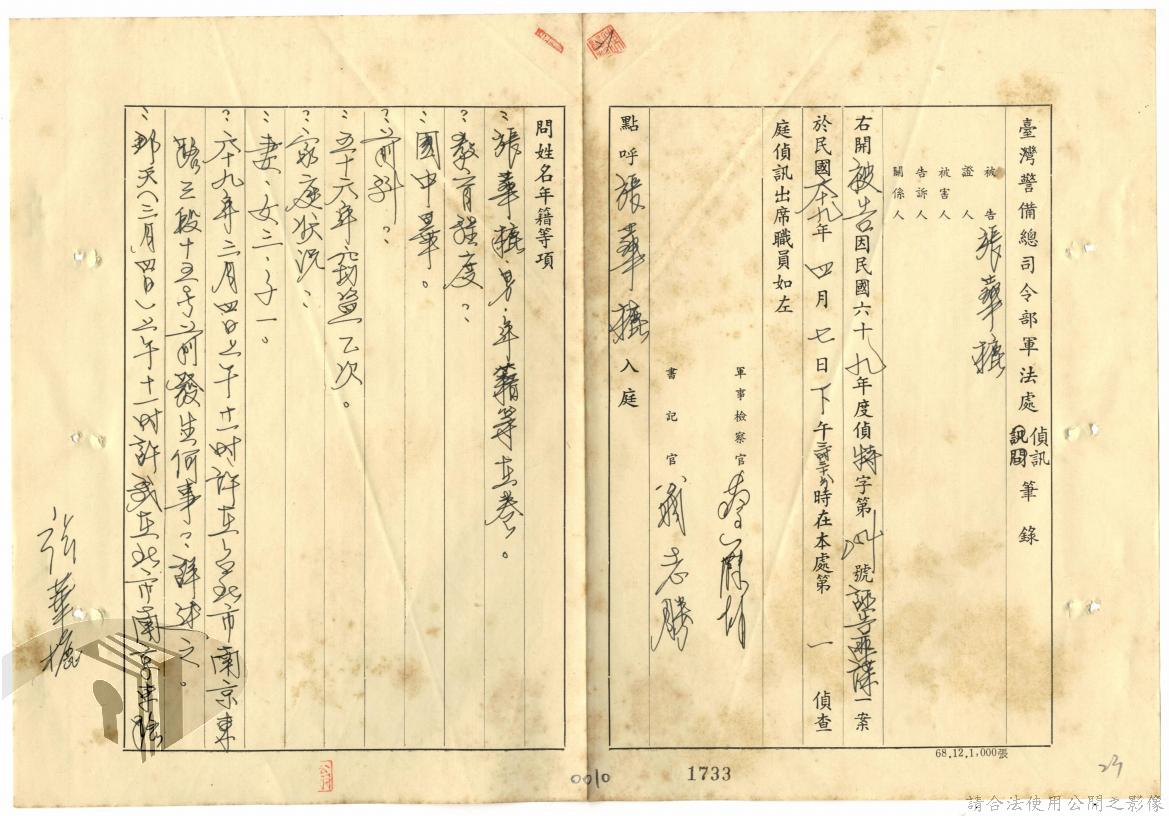 臺灣警備總司令部軍法處 偵訊 訊問 筆錄
被告 張華㨗
證人
被害人
告訴人
關係人
右開被告因民國六十九年度偵特字第 號 一案
於民國六十九年四月七日下午 時在本處第一偵查
庭偵訊出席職員如左
軍事檢察官
書記官 志勝
點呼張華 入庭
問姓名年籍等項
:張華 ,男,年籍等在卷。
?教育程度?
:國中畢。
?前科?
:五十六年竊盜乙次。
?家庭狀況?
:妻、女二、子一。
?六十九年二月四日上午十一時許在台北市南京東
路三段十五号前發生何事?詳述之。
:那天(二月四日)上午十一时許我在北市南京東路
張華
68.12.1,000張
1733
0010
23
請合法使用公開之影像